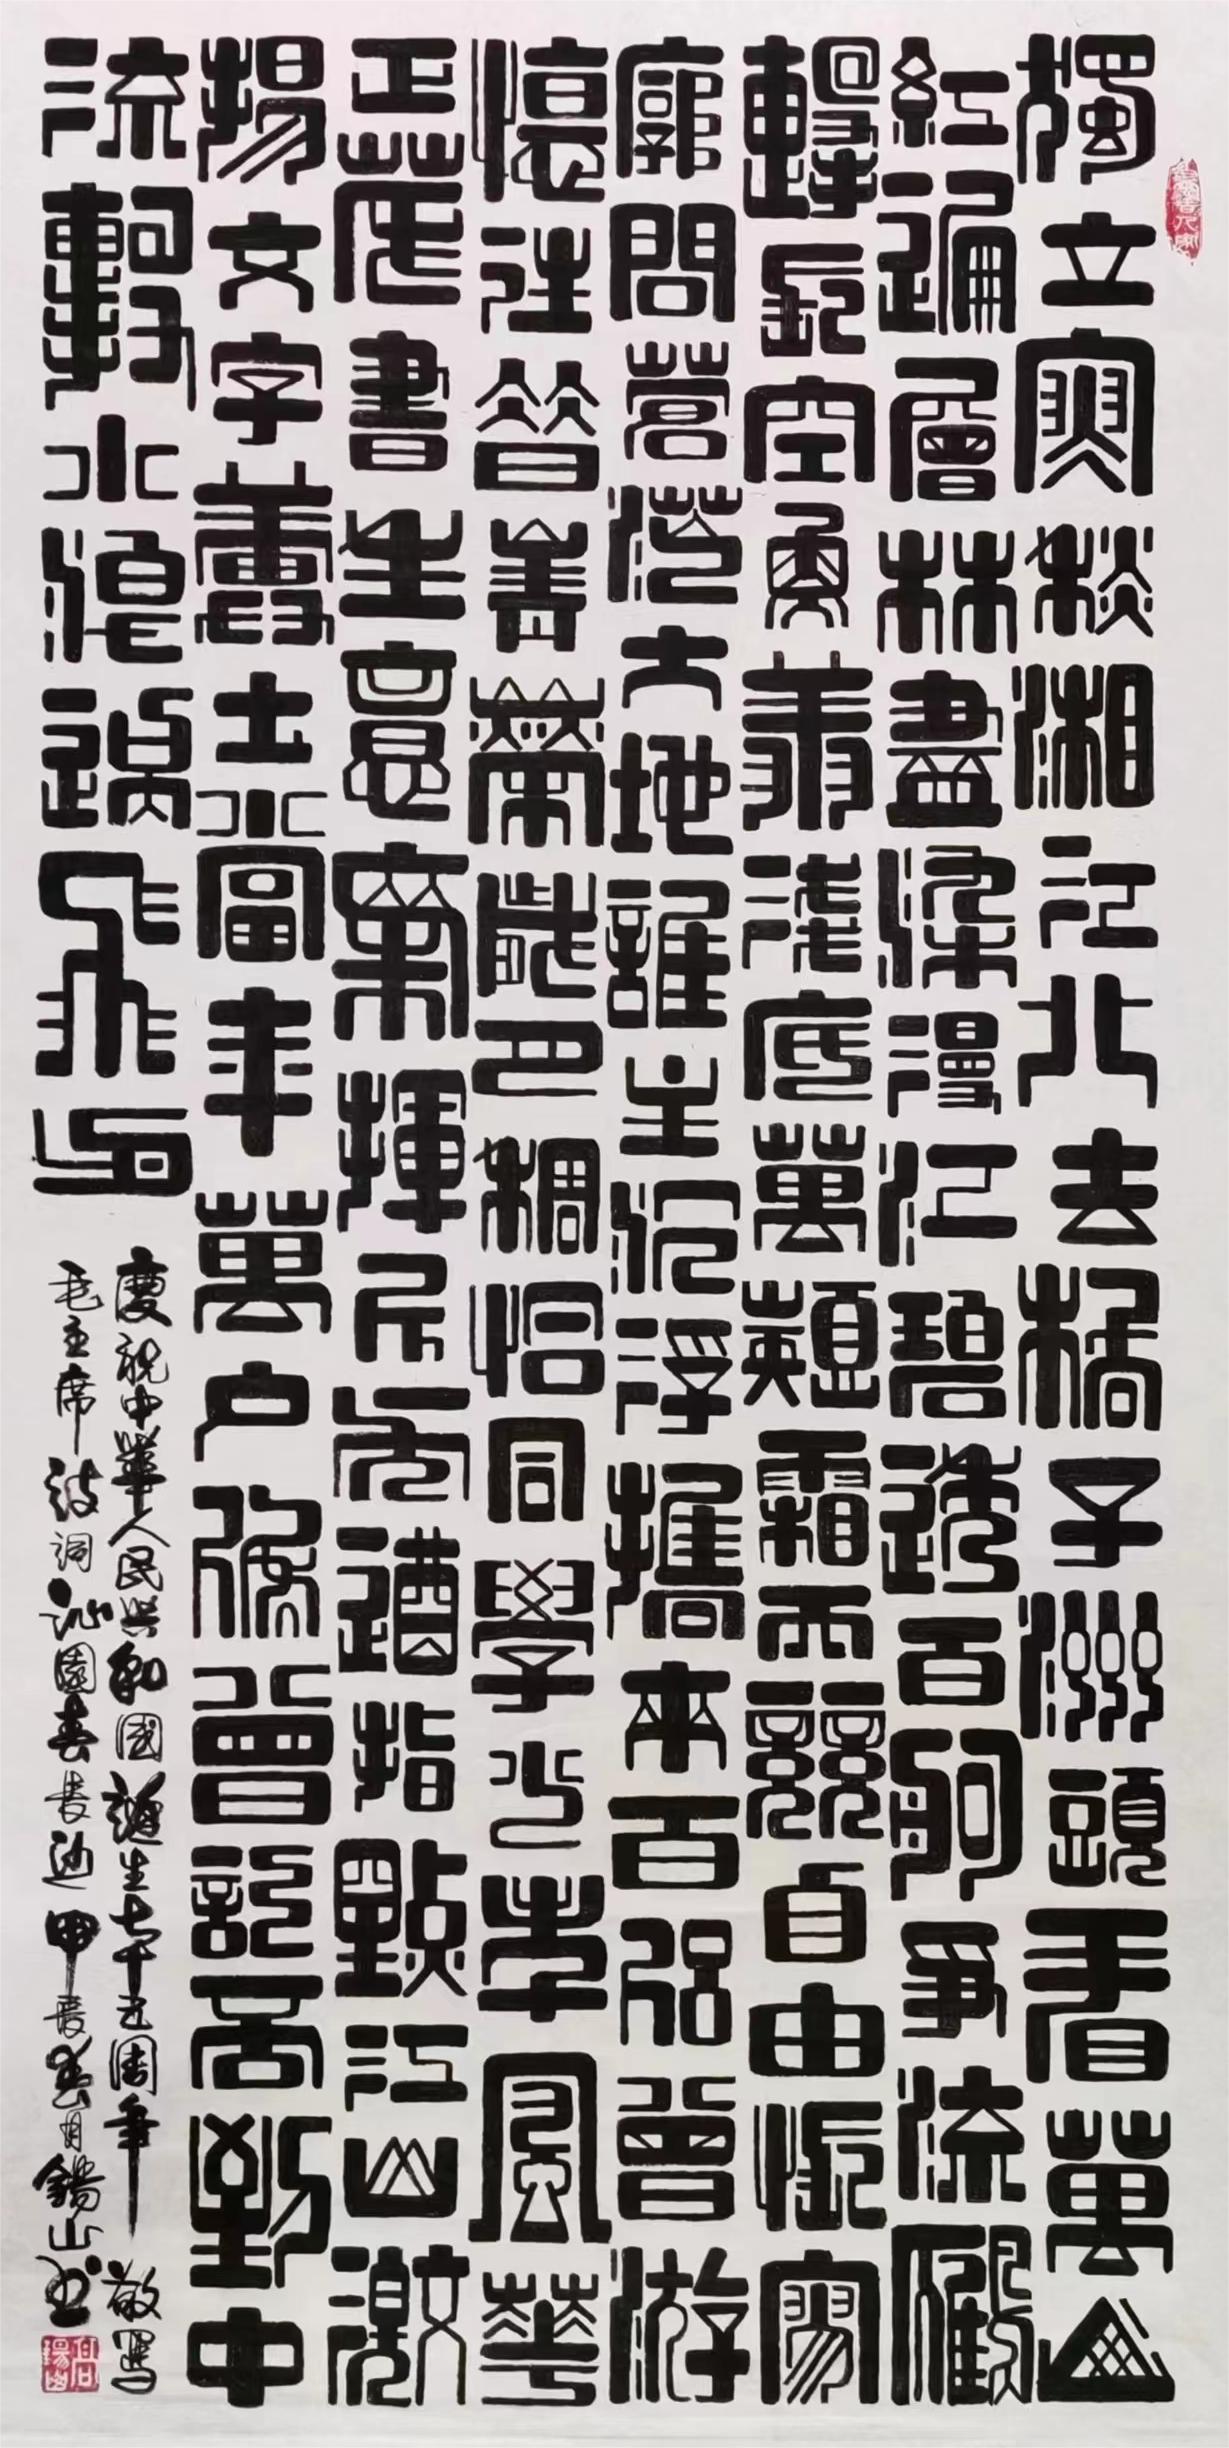 獨立寒秋湘江北去橘子洲頭看萬山
紅遍層林盡染漫江碧透百舸爭流鷹
擊長空魚翔淺底萬類霜天競自由悵寥
廓問蒼茫大地誰主沉浮攜來百侶曾游
憶往昔崢嶸歲月稠恰同學少年風華
正茂書生意氣揮斥方遒指點江山激
揚文字糞土當年萬戶侯曾記否到中
流擊水浪遏飛舟
慶祝中華人民共和國誕生七十五周年敬寫
毛主席詩詞沁園春長沙甲辰春月錫山書
高錫山